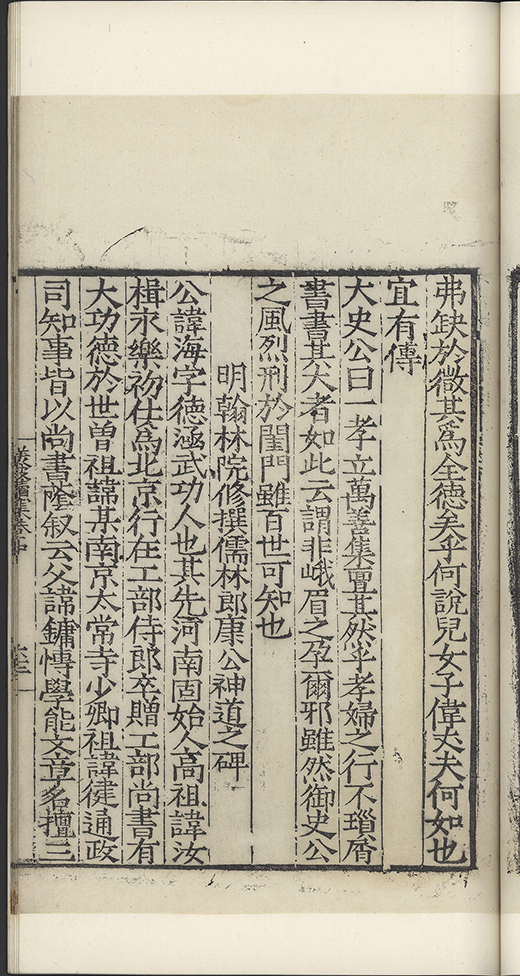 弗缺於微其為全德矣乎何說兒女子偉丈夫何如也
宜有傳
大史公曰一孝立萬善集亶其然乎孝婦之行不瑣屑
書書其大者如此云謂非峨眉之孕爾邪雖然御史公
之風烈刑於閨門雖百世可知也
明翰林院修撰儒林郎康公神道之碑
公諱海字德涵武功人也其先河南固始人高祖諱汝
楫永樂初仕為北京行在工部侍郎卒贈工部尚書有
大功德於世曾祖諱某南京太常寺少卿祖諱健通政
司知事皆以尚書廕叙云父諱鏞博學能文章名擅三